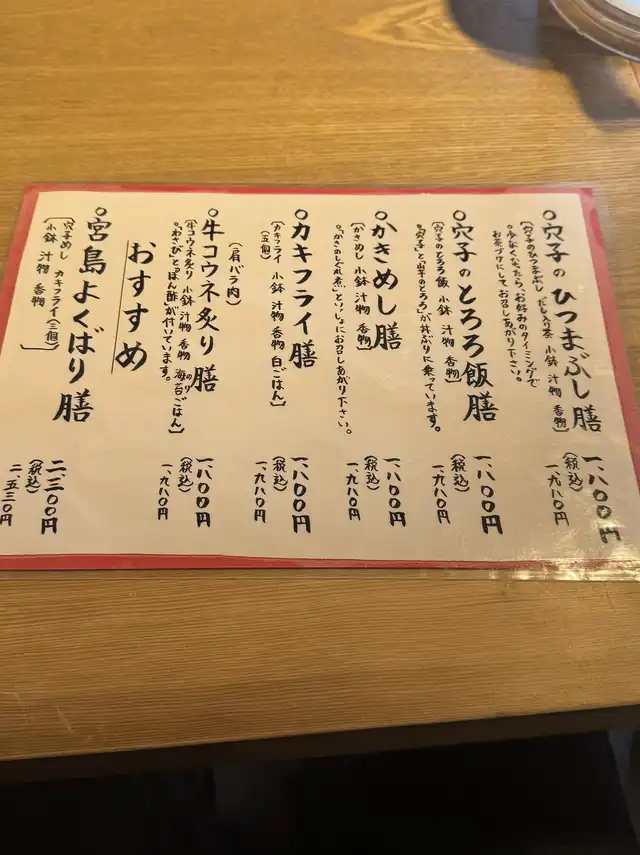 ○穴子のひつまぶし膳
〔穴子のひつまぶし だし入り茶 小鉢 汁物 香物〕
○少なくなったら、お好みのタイミングで
お茶づけにしてお召しあがり下さい。
一、八〇〇円
(税込)
一、九八〇円
○穴子のとろろ飯膳
〔穴子のとろろ飯 小鉢 汁物 香物〕
○「穴子」と「山芋のとろろ」が丼ぶりに乗っています。
一、八〇〇円
(税込)
一、九八〇円
○かきめし膳
〔かきめし 小鉢 汁物 香物〕
○「かきのしぐれ煮」といっしょにお召しあがり下さい。
一、八〇〇円
(税込)
一、九八〇円
○カキフライ膳
〔カキフライ 小鉢 汁物 香物 白ごはん〕
(五個)
一、八〇〇円
(税込)
一、九八〇円
(肩バラ肉)
○牛コウネ炙り膳
〔牛コウネ炙り 小鉢 汁物 香物 海苔ごはん〕
のり
○「わさび」と「ぽん酢」が付いています。
一、八〇〇円
(税込)
一、九八〇円
おすすめ
○宮島よくばり膳
〔穴子めし カキフライ(三個)
小鉢 汁物 香物〕
二、三〇〇円
(税込)
二、五三〇円